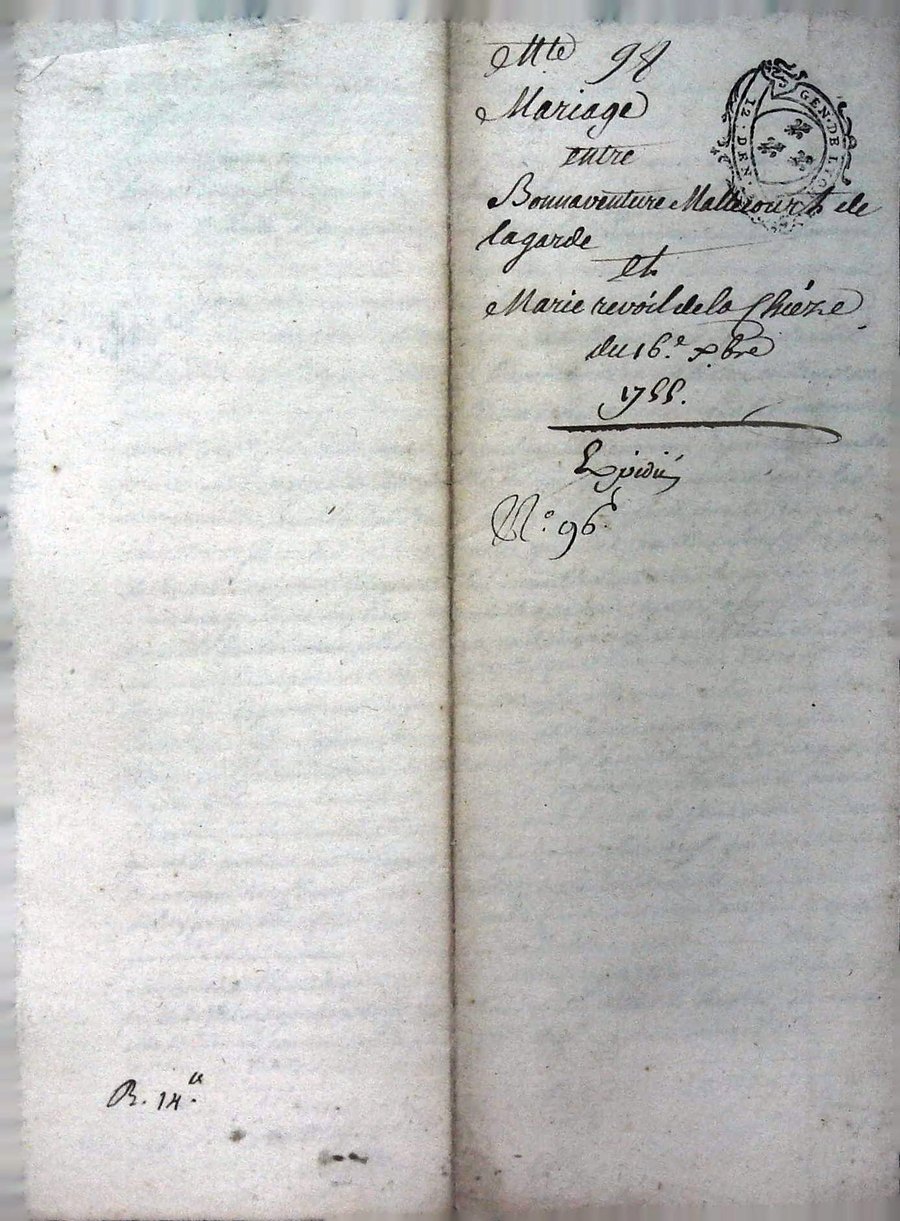 Mte 98
Mariage
entre
Bonnaventure Mallecourt de
lagarde
et
Marie revoil de la Chièze
du 16.e xbre
1755.
Expédié
N.o 96
GEN. DE LION
12. DEN.
R. 14.a